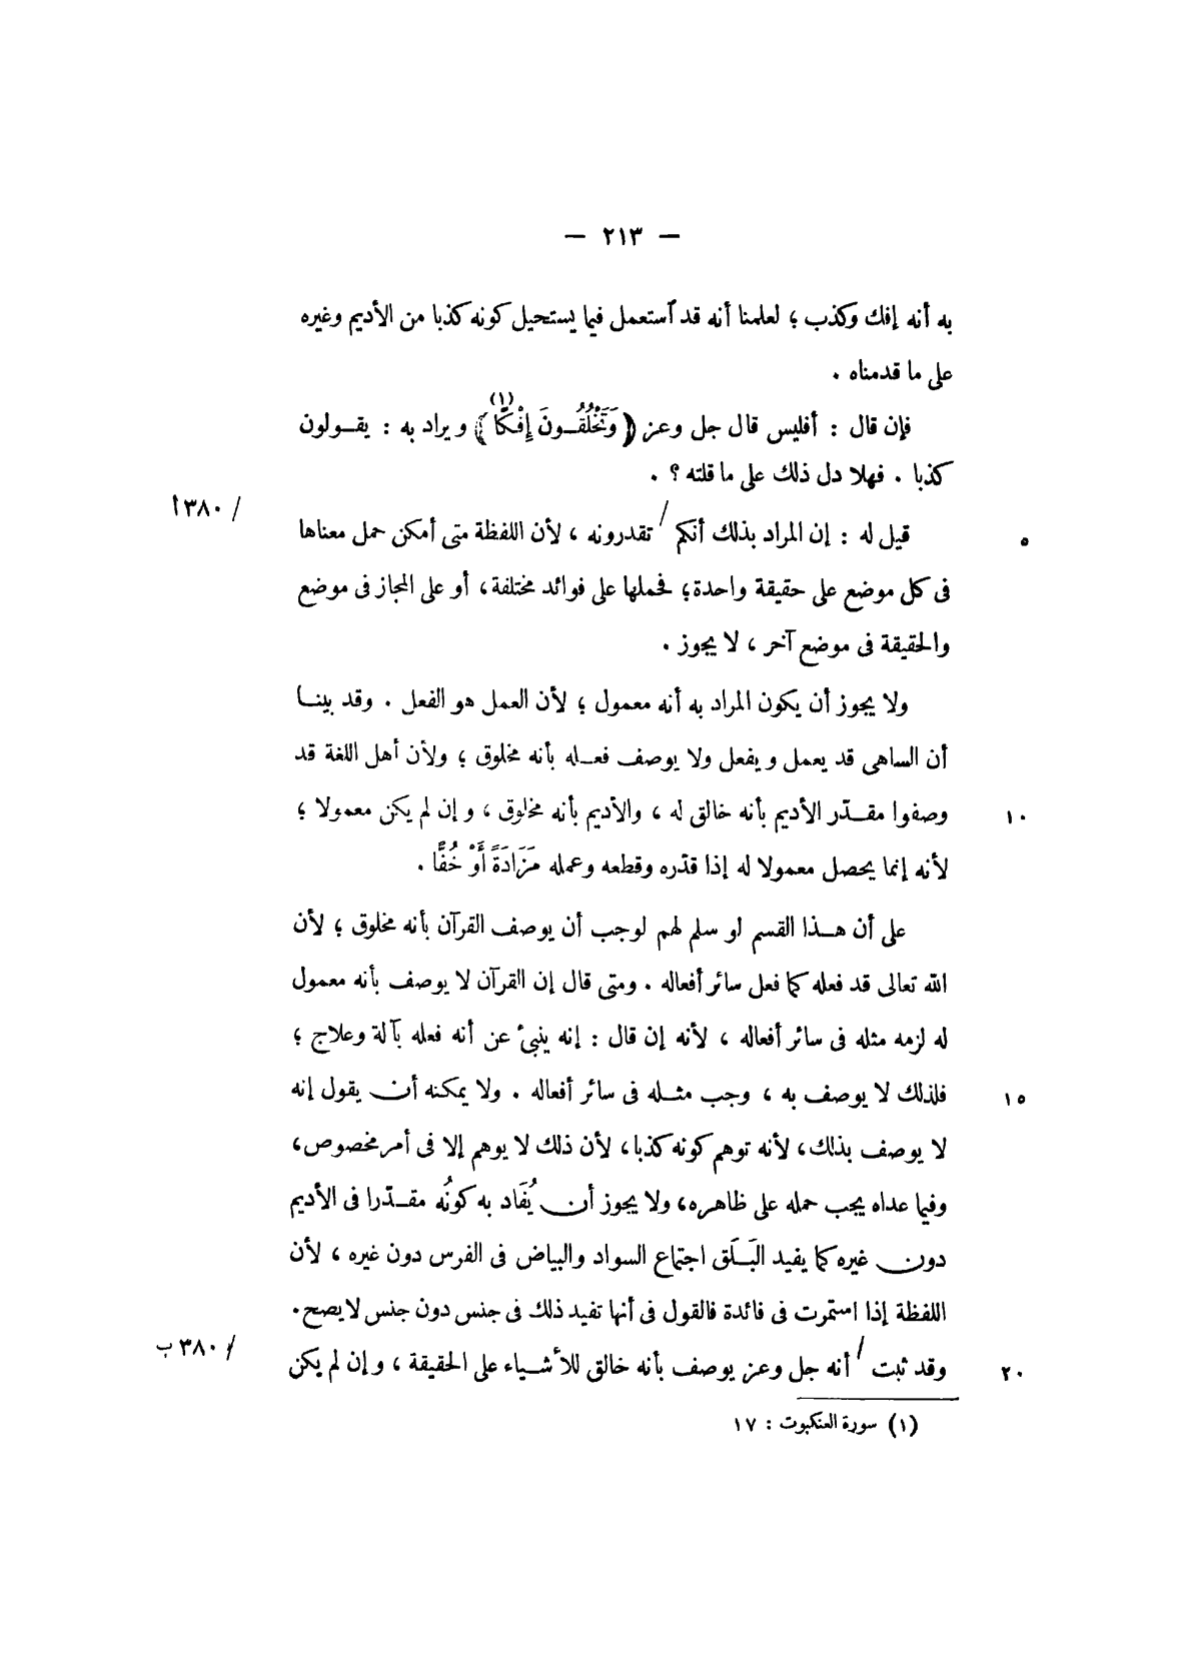 — ٢١٣ —
به أنه إفك وكذب ؛ لعلمنا أنه قد آستعمل فيما يستحيل كونه كذبا من الأديم وغيره
على ما قدمناه .
فإن قال : أفليس قال جل وعز ﴿ وَتَخْلُقُــونَ إِفْكًا ﴾(١) ويراد به : يقــولون
كذبا . فهلا دل ذلك على ما قلته ؟ .
/ ٣٨٠ ا
قيل له : إن المراد بذلك أنكم / تقدرونه ، لأن اللفظة متى أمكن حمل معناها ٥
فى كل موضع على حقيقة واحدة؛ فحملها على فوائد مختلفة، أو على المجاز فى موضع
والحقيقة فى موضع آخر ، لا يجوز .
ولا يجوز أن يكون المراد به أنه معمول ؛ لأن العمل هو الفعل . وقد بينــا
أن الساهى قد يعمل ويفعل ولا يوصف فعــله بأنه مخلوق ؛ ولأن أهل اللغة قد
وصفوا مقــدّر الأديم بأنه خالق له ، والأديم بأنه مخلوق ، وإن لم يكن معمولا ؛ ١٠
لأنه إنما يحصل معمولا له إذا قدّره وقطعه وعمله مَزَادَةً أَوْ خُفًّا .
على أن هــذا القسم لو سلم لهم لوجب أن يوصف القرآن بأنه مخلوق ؛ لأن
الله تعالى قد فعله كما فعل سائر أفعاله . ومتى قال إن القرآن لا يوصف بأنه معمول
له لزمه مثله فى سائر أفعاله ، لأنه إن قال : إنه ينبئ عن أنه فعله بآلة وعلاج ؛
فلذلك لا يوصف به ، وجب مثــله فى سائر أفعاله . ولا يمكنه أن يقول إنه ١٥
لا يوصف بذلك، لأنه توهم كونه كذبا، لأن ذلك لا يوهم إلا فى أمر مخصوص،
وفيما عداه يجب حمله على ظاهره، ولا يجوز أن يُفَاد به كونُه مقــدّرا فى الأديم
دون غيره كما يفيد البَــلَق اجتماع السواد والبياض فى الفرس دون غيره ، لأن
اللفظة إذا استمرت فى فائدة فالقول فى أنها تفيد ذلك فى جنس دون جنس لا يصح .
/ ٣٨٠ ب
وقد ثبت / أنه جل وعز يوصف بأنه خالق للأشــياء على الحقيقة ، وإن لم يكن ٢٠
(١) سورة العنكبوت : ١٧